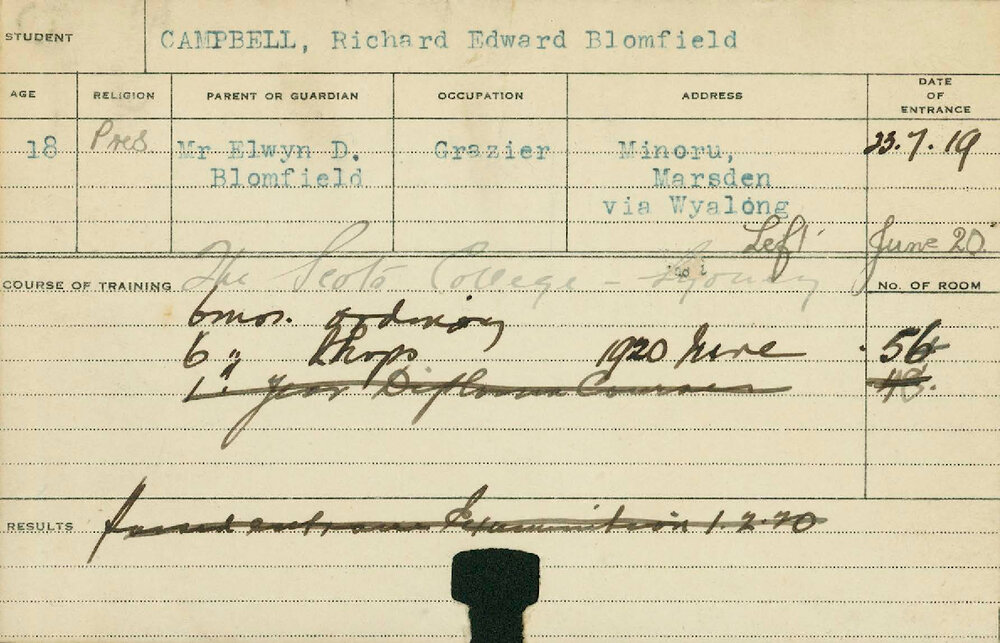 STUDENT CAMPBELL, Richard Edward Blomfield
AGE RELIGION PARENT OR GUARDIAN OCCUPATION ADDRESS DATE OF ENTRANCE
18 Pres Mr Elwyn D. Grazier Minoru, 23.7.19
Blomfield Marsden
via Wyalong
Left June 20
The Scots College - Sydney
COURSE OF TRAINING No. OF ROOM
6 mos. ordinary
6 " Shops 1920 June 56
1st Year Diploma Course
RESULTS Passed entrance Examination 1.2.20